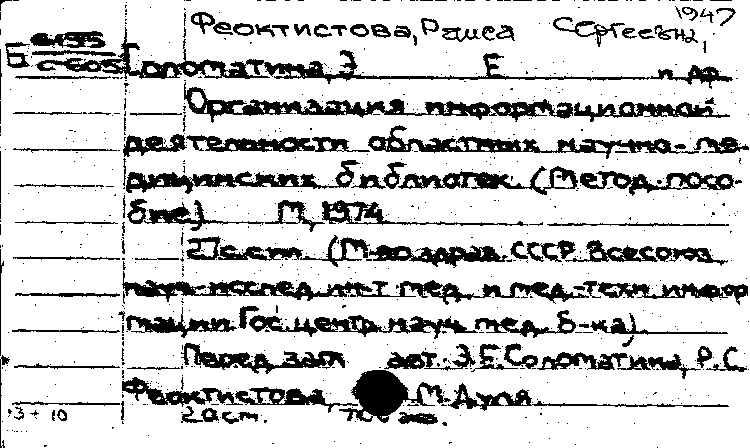 Феоктистова, Раиса Сергеевна, 1947
Б 6195
С-605 Соломатина, Э Е и др.
Организация информационной
деятельности областных научно-ме-
дицинских библиотек. (Метод. посо-
бие) М, 1974
27с.ст. (М-во здрав. СССР. Всесоюз
науч-исслед ин-т мед. и мед.-техн инфор
мации. Гос. центр. науч мед. б-ка)
Перед загл авт.: Э.Е.Соломатина, Р.С.
Феоктистова, М.Дуля.
13 + 10 20 ст. экз.